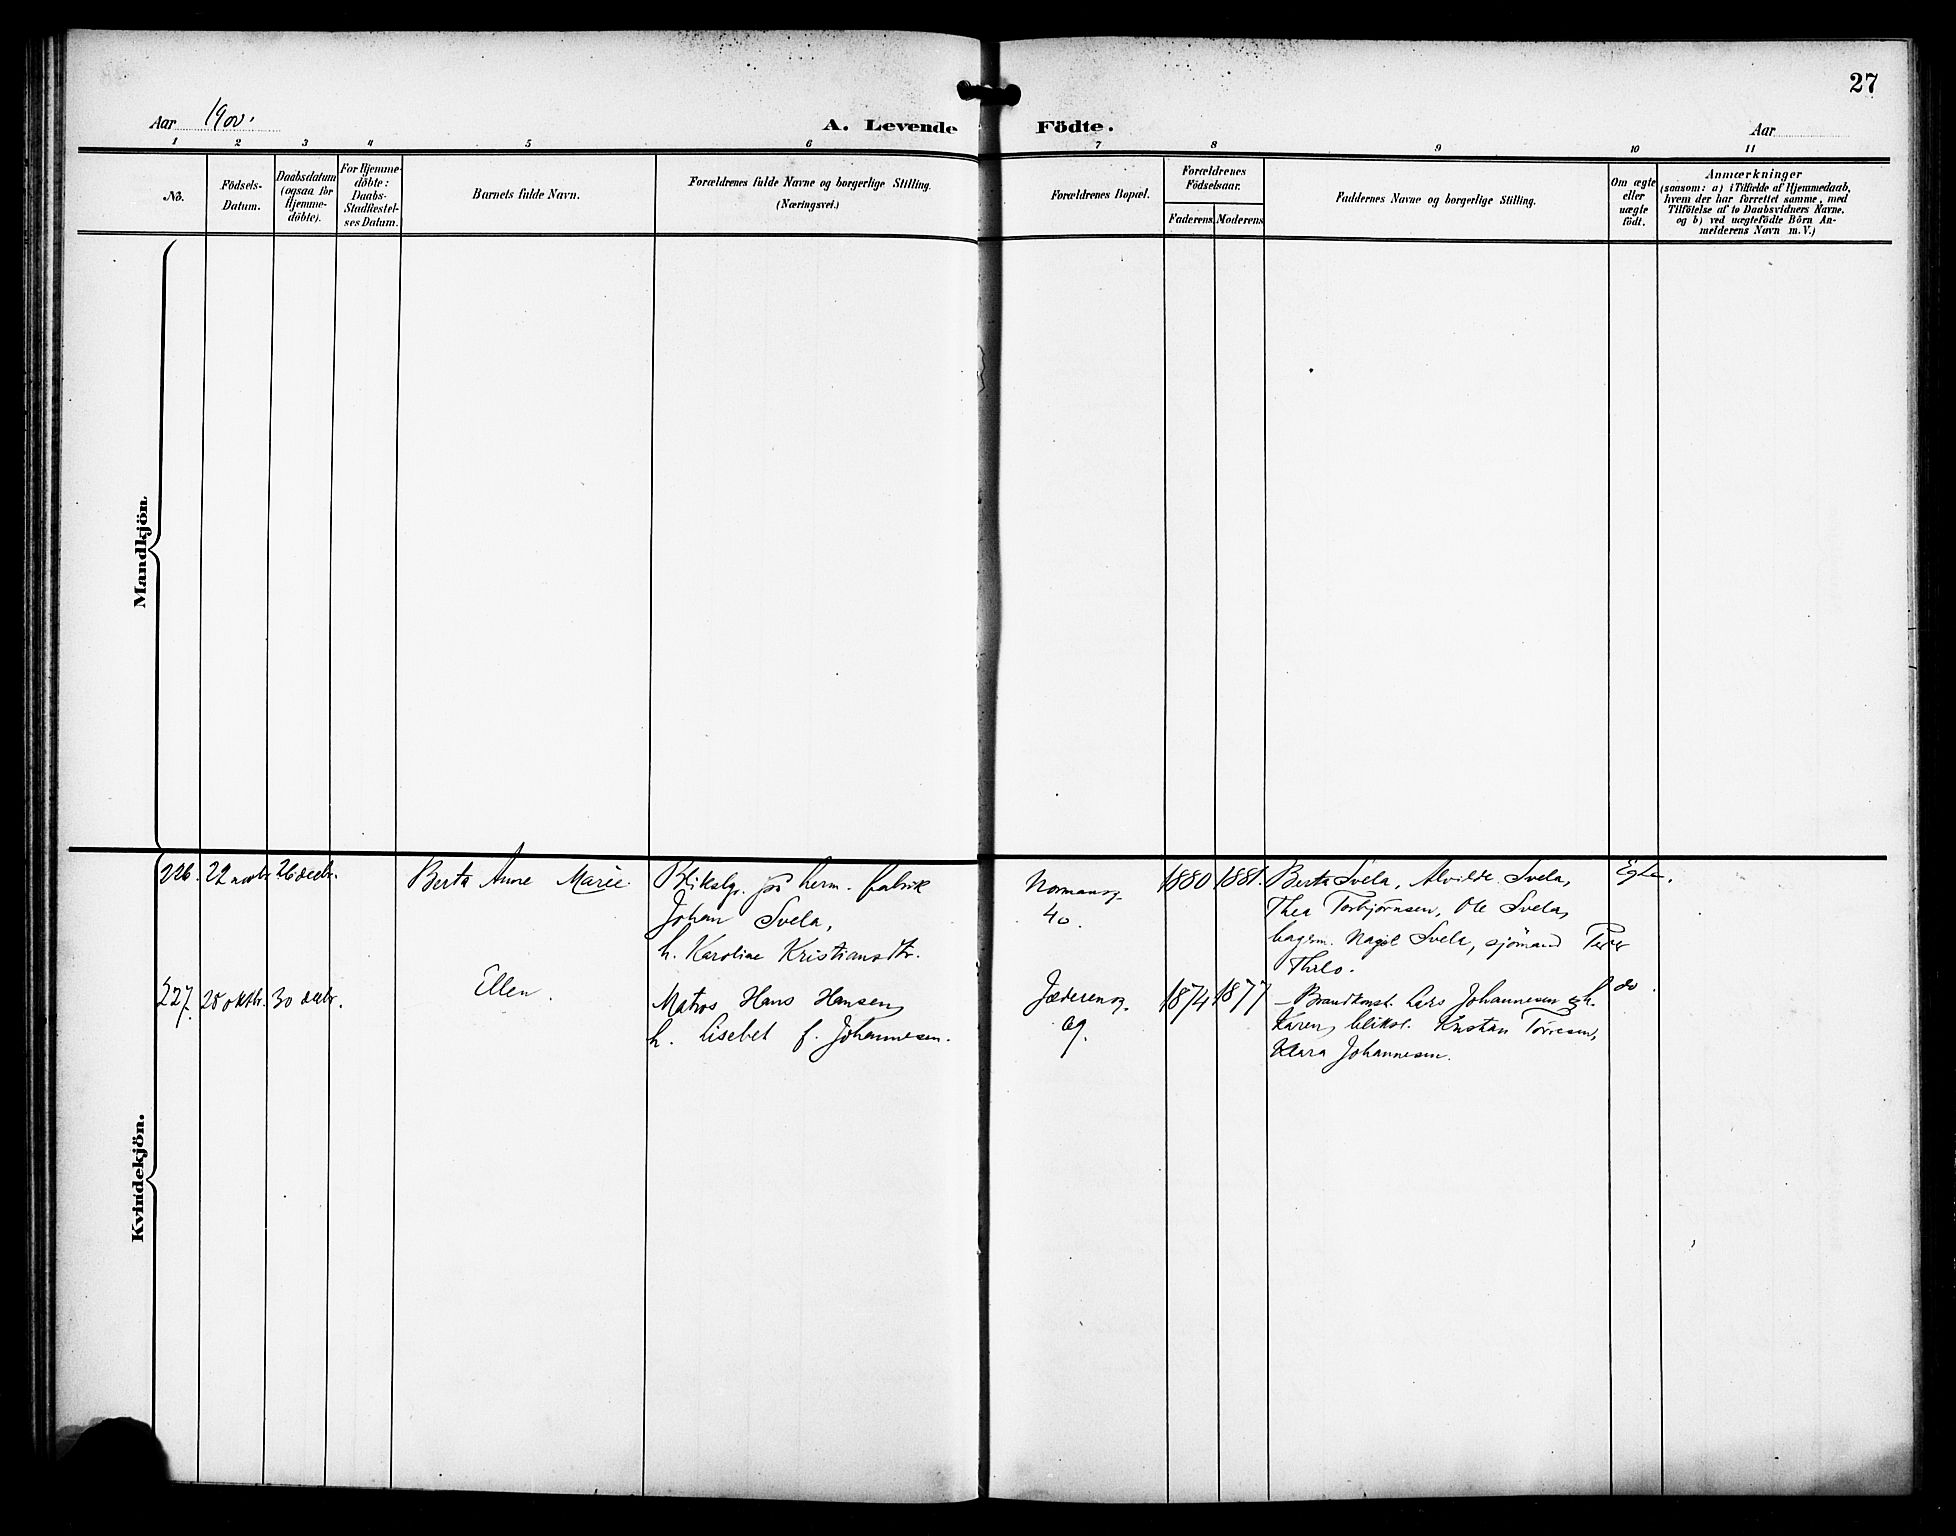 27
Aar 1900.
A. Levende Födte.
Aar
1 2 3 4 5 6 7 8 9 10 11
No.
Födsels-
Datum.
Daabsdatum
(ogsaa for
Hjemme-
döbte).
For Hjemme-
döbte:
Daabs-
Stadfestel-
ses Datum.
Barnets fulde Navn.
Forældrenes fulde Navne og borgerlige Stilling.
(Næringsvei.)
Forældrenes Bopæl.
Forældrenes
Födselsaar.
Faderens. Moderens.
Faddernes Navne og borgerlige Stilling.
Om ægte
eller
uægte
födt.
Anmærkninger
(saasom: a) i Tilfælde af Hjemmedaab,
hvem der har forrettet samme, med
Tilföielse af to Daabsvidners Navne.
og b) ved uægtefödte Börn An-
melderens Navn m. V.)
Mandkjön
Kvindekjön.
226. 22 novbr. 26 decbr.
Berta Anne Marie.
Blikslgr. på herm. fabrik
Johan Svela,
h. Karoline Kristiansdtr.
Normansg.
40.
1880 1881.
Berta Svela, Alvilde Svela,
Thea Torbjörnsen, Ole Svela,
Svela, sjömand Peder
Thilo.
Egte.
227. 28 oktbr. 30 decbr.
Ellen.
Matros Hans Hansen,
h. Lisebet f. Johannesen.
Jæderensg.
69.
1874 1877
Brandkonst. Lars Johannesen & h.
Karen, bliksl. Kristan Törresen,
Klara Johannesen.
do.